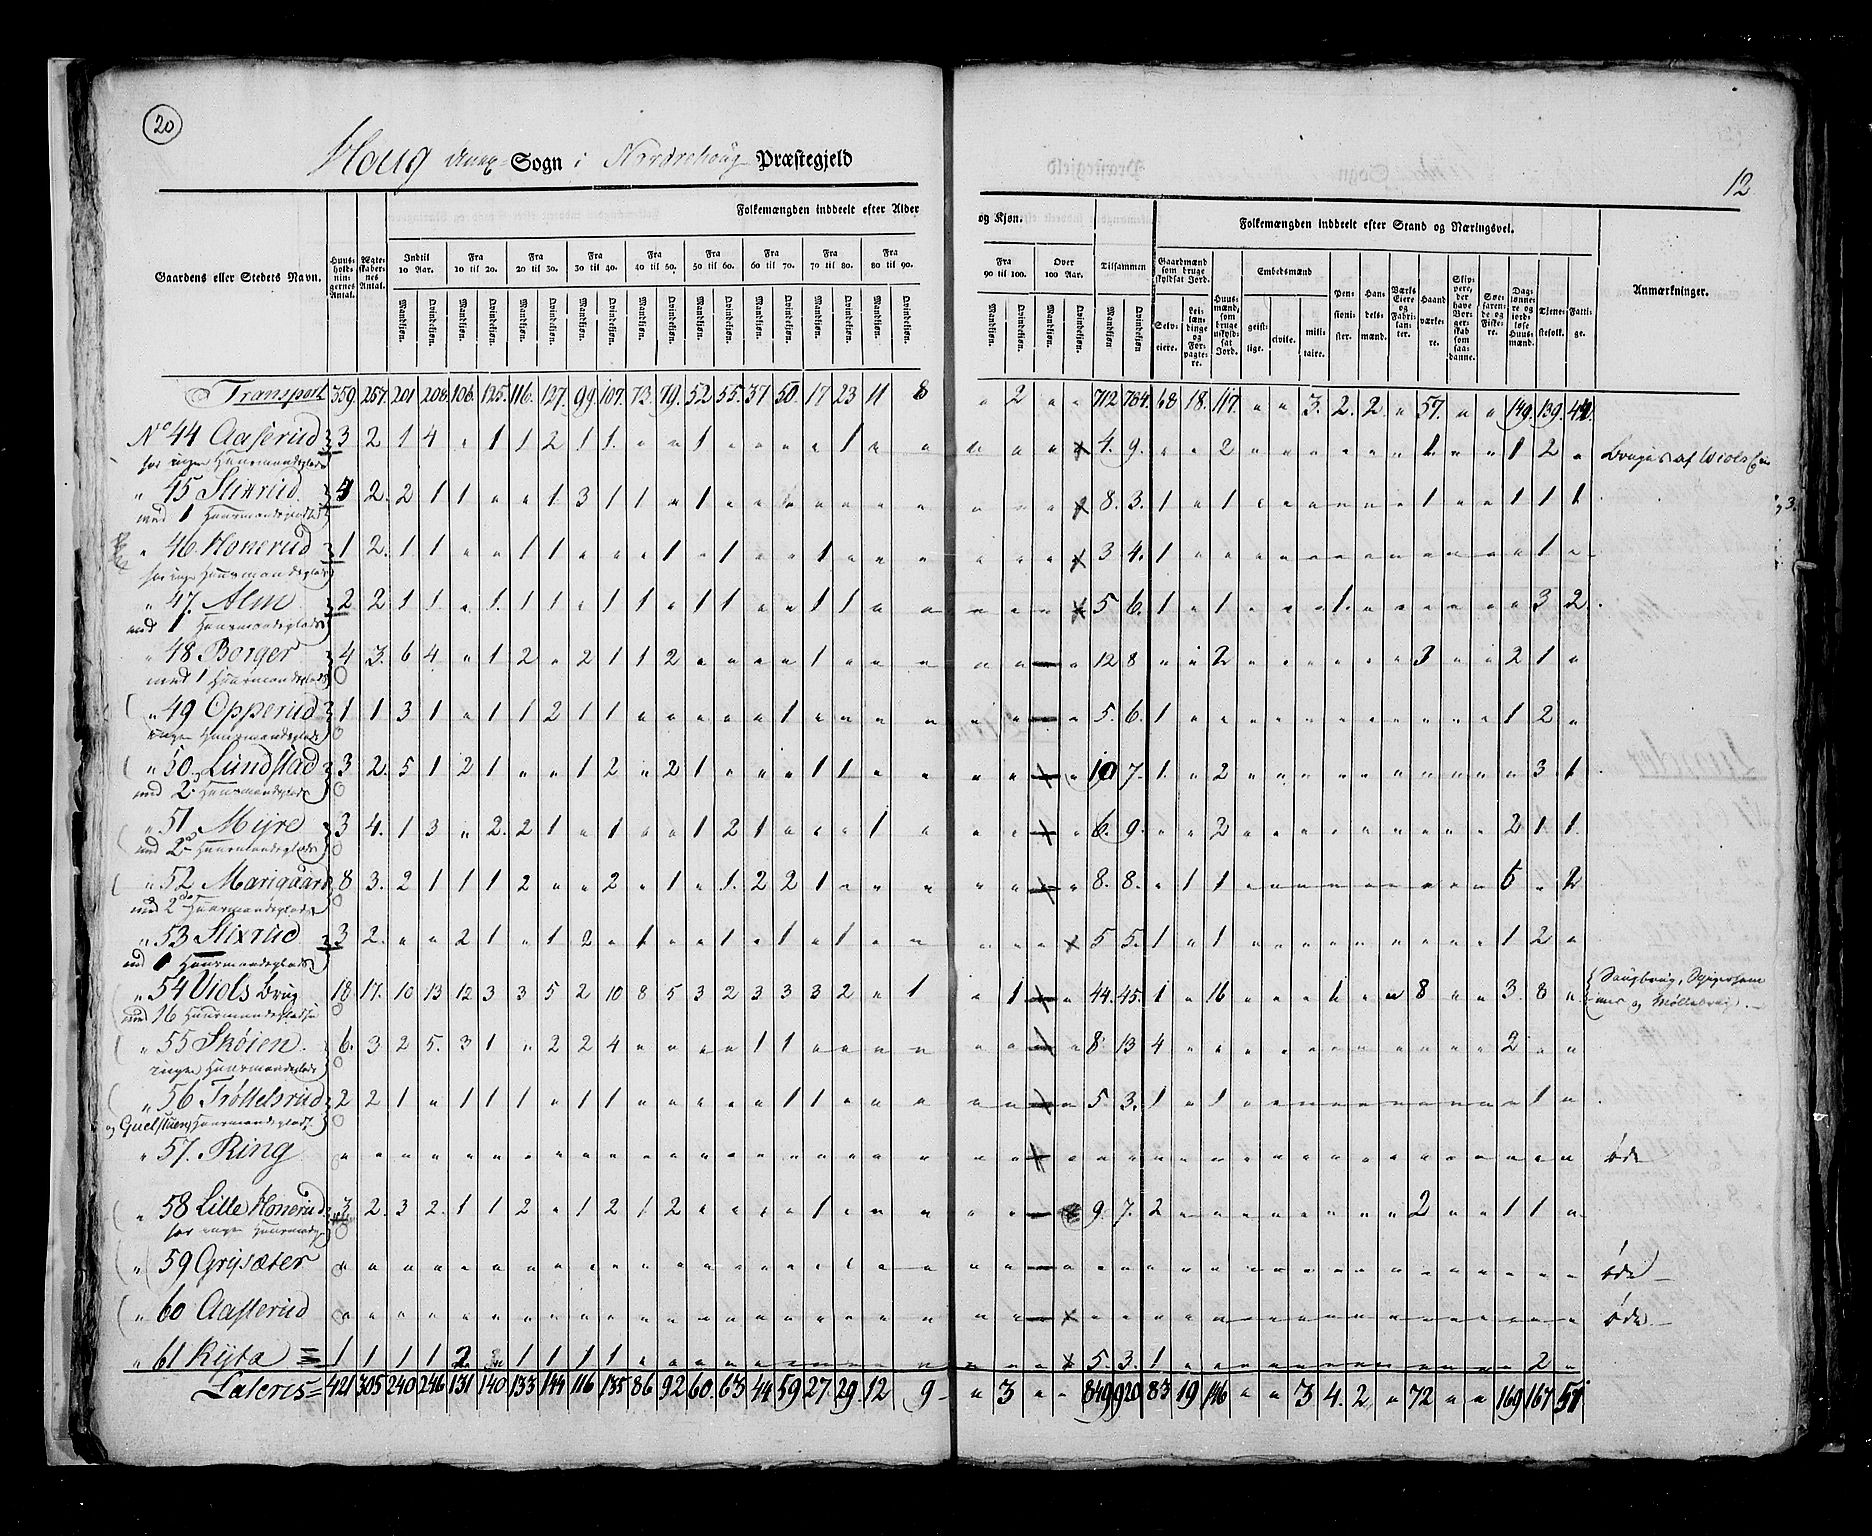 20
Houg Annex Sogn i Nordrehoug Præstegjeld
12
Gaardens eller Stedets Navn. Huus-holdningernes Antal. Ægteskabernes Antal. Folkemængden inddeelt efter Alder og Kjøn. Folkemængden inddeelt efter Stand og Næringsvei. Anmærkninger.
Indtil 10 Aar. Fra 10 til 20. Fra 20 til 30. Fra 30 til 40. Fra 40 til 50. Fra 50 til 60. Fra 60 til 70. Fra 70 til 80. Fra 80 til 90. Fra 90 til 100. Over 100 Aar. Tilsammen
Mandkjøn. Qvindekjøn.
Gaardmænd som bruge skyldsat Jord. Selveiere. Leilændinge og Forpagtere. Huusmænd, som bruge uskyldsat Jord. Embedsmænd geistlige. civile. militaire. Pensionister. Handelsmænd. Værks Eiere og Fabrikanter. Haandværkere. Skippere, der have Borgerskab som saadanne. Søefarende og Fiskere. Dagslønnere og jordløse Huusmænd. Tjenestefolk. Fattige.
Transport 359. 257. 201 208 106. 125. 116. 127. 99 107. 73. 79. 52 55. 37 50. 17 23 11 8 " 2 " " 712 784. 68 18. 117. " " 3. 2. 2 " 57. " " 149. 139. 42.
No 44 Aaserud 3 2 1 4 " 1 1 2 1 1. " " 1 " " " " 1 " " " " " " 4. 9. " " 2 " " " " " " 1 " " 1 2 "
har ingen Huusmandsplads
" 45 Stixrud 4 2. 2 1 1 " " 1 3 1 1 " 1 " " " " " " " " " " " 8. 3. 1 " 1 " " " " " " 1 " " 1 1 1
med 1 Huusmandsplads
" 46 Honerud 1 2. 1 1 " " 1 1 " " " 1 " 1 " " 1 " " " " " " " 3 4. 1 " " " " " " " " " " " " 1 "
har ingen Huusmandsplads
" 47. Alm 2 2 1 1 " 1. 1 1 " 1 1 " 1 1 " " 1 1 " " " " " " 5 6. 1 " 1 " " " 1 " " " " " " 3 2
med 1 Huusmandsplads
" 48 Borger 4 3. 6 4 " 1 2 " 2 1 1 2 " " " " 1 " " " " " " " 12 8 " " 2 " " " " " " 3 " " 2 1 "
med 1 Huusmandsplads
" 49 Opperud 1 1 3 1 " 1 1 2 1 1 " " " " " 1 " " " " " " " " 5. 6. 1 " " " " " " " " " " " 1 2 "
ingen Huusmandsplads
" 50. Lundstad 3 2. 5 1 2 1 " " 1 2 " 2 1 " " " 1 1 " " " " " " 10 7. 1. " 2 " " " " " " " " " " 3 1
med 2 Huusmandspladse
" 51 Myre 3 4. 1 3 " 2. 2 1 " 1 " " 1 2 1 " " " 1 " " " " " 6. 9. " " 2 " " " " " " " " " 2 1 1
med 2de Huusmandspladse
" 52 Marigaard 8 3. 2 1 1 1 2 " " 2 " 1 " 1. 2 2 1 " " " " " " " 8. 8. " 1 1 " " " " " " " " " 5 " 2
med 2de Huusmandspladse
" 53 Stixrud 3 2. " " 2 1 " 1 2 " 1 " " 1 " 1 " 1 " " " " " " 5 5. 1 " 1 " " " " " " " " " 1 2 "
med 1 Huusmandsplads
" 54 Viols Brug 18 17. 10 13 12 3 3 5 2 10 8 5 3 2 3 3 3 2 " 1 " 1 " " 44. 45. 1 " 16 " " " 1 " " 8 " " 3. 8 " Saugbrug, Spigerham
med 16 Huusmandspladse
" 55 Skøien. 6. 3 2 5. 3 1 " 2 2 4 " " " " 1 1 " " " " " " " " 8 13 4 " " " " " " " " " " " 2 " "
ingen Huusmandsplads
" 56 Trøttelsrud 2 2 1 " 1 1 1 " 1 1 " " " " " 1 1 " " " " " " " 5. 3. 1 " 1 " " " " " " " " " " 1 "
" 57. Ring øde
" 58 Lille Honerud 3 2. 3 2. 1 1 2 " 1 2 1 2 " " " " 1 " " " " " " " 9. 7. 2 " " " " " " " " 2 " " 1 1 "
har ingen
" 59 Grysæter øde
" 60 Aasterud øde
" 61 Rijta 1 1 1 1 2 " 1 1 1 1 " " " " " " " " " " " " " " 5. 3. 1 " " " " " " " " " " " " 2 "
Lateris = 421 305 240 246 131 140 133 144 116 135 86 92 60. 63 44 59 27. 29. 12 9 " 3 " " 849 920. 83 19 146 " " 3 4. 2 " 72 " " 169 167 51